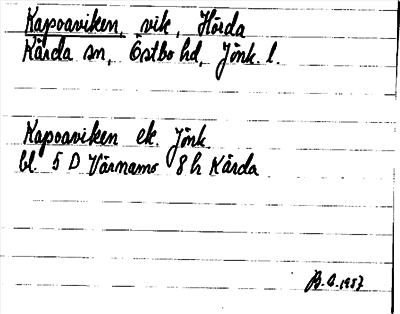 Kapoaviken, vik, Hörda
Kärda sn, Östbo hd, Jönk. l.
Kapoaviken ek. Jönk.
bl 5 D Värnamo 8 h Kärda